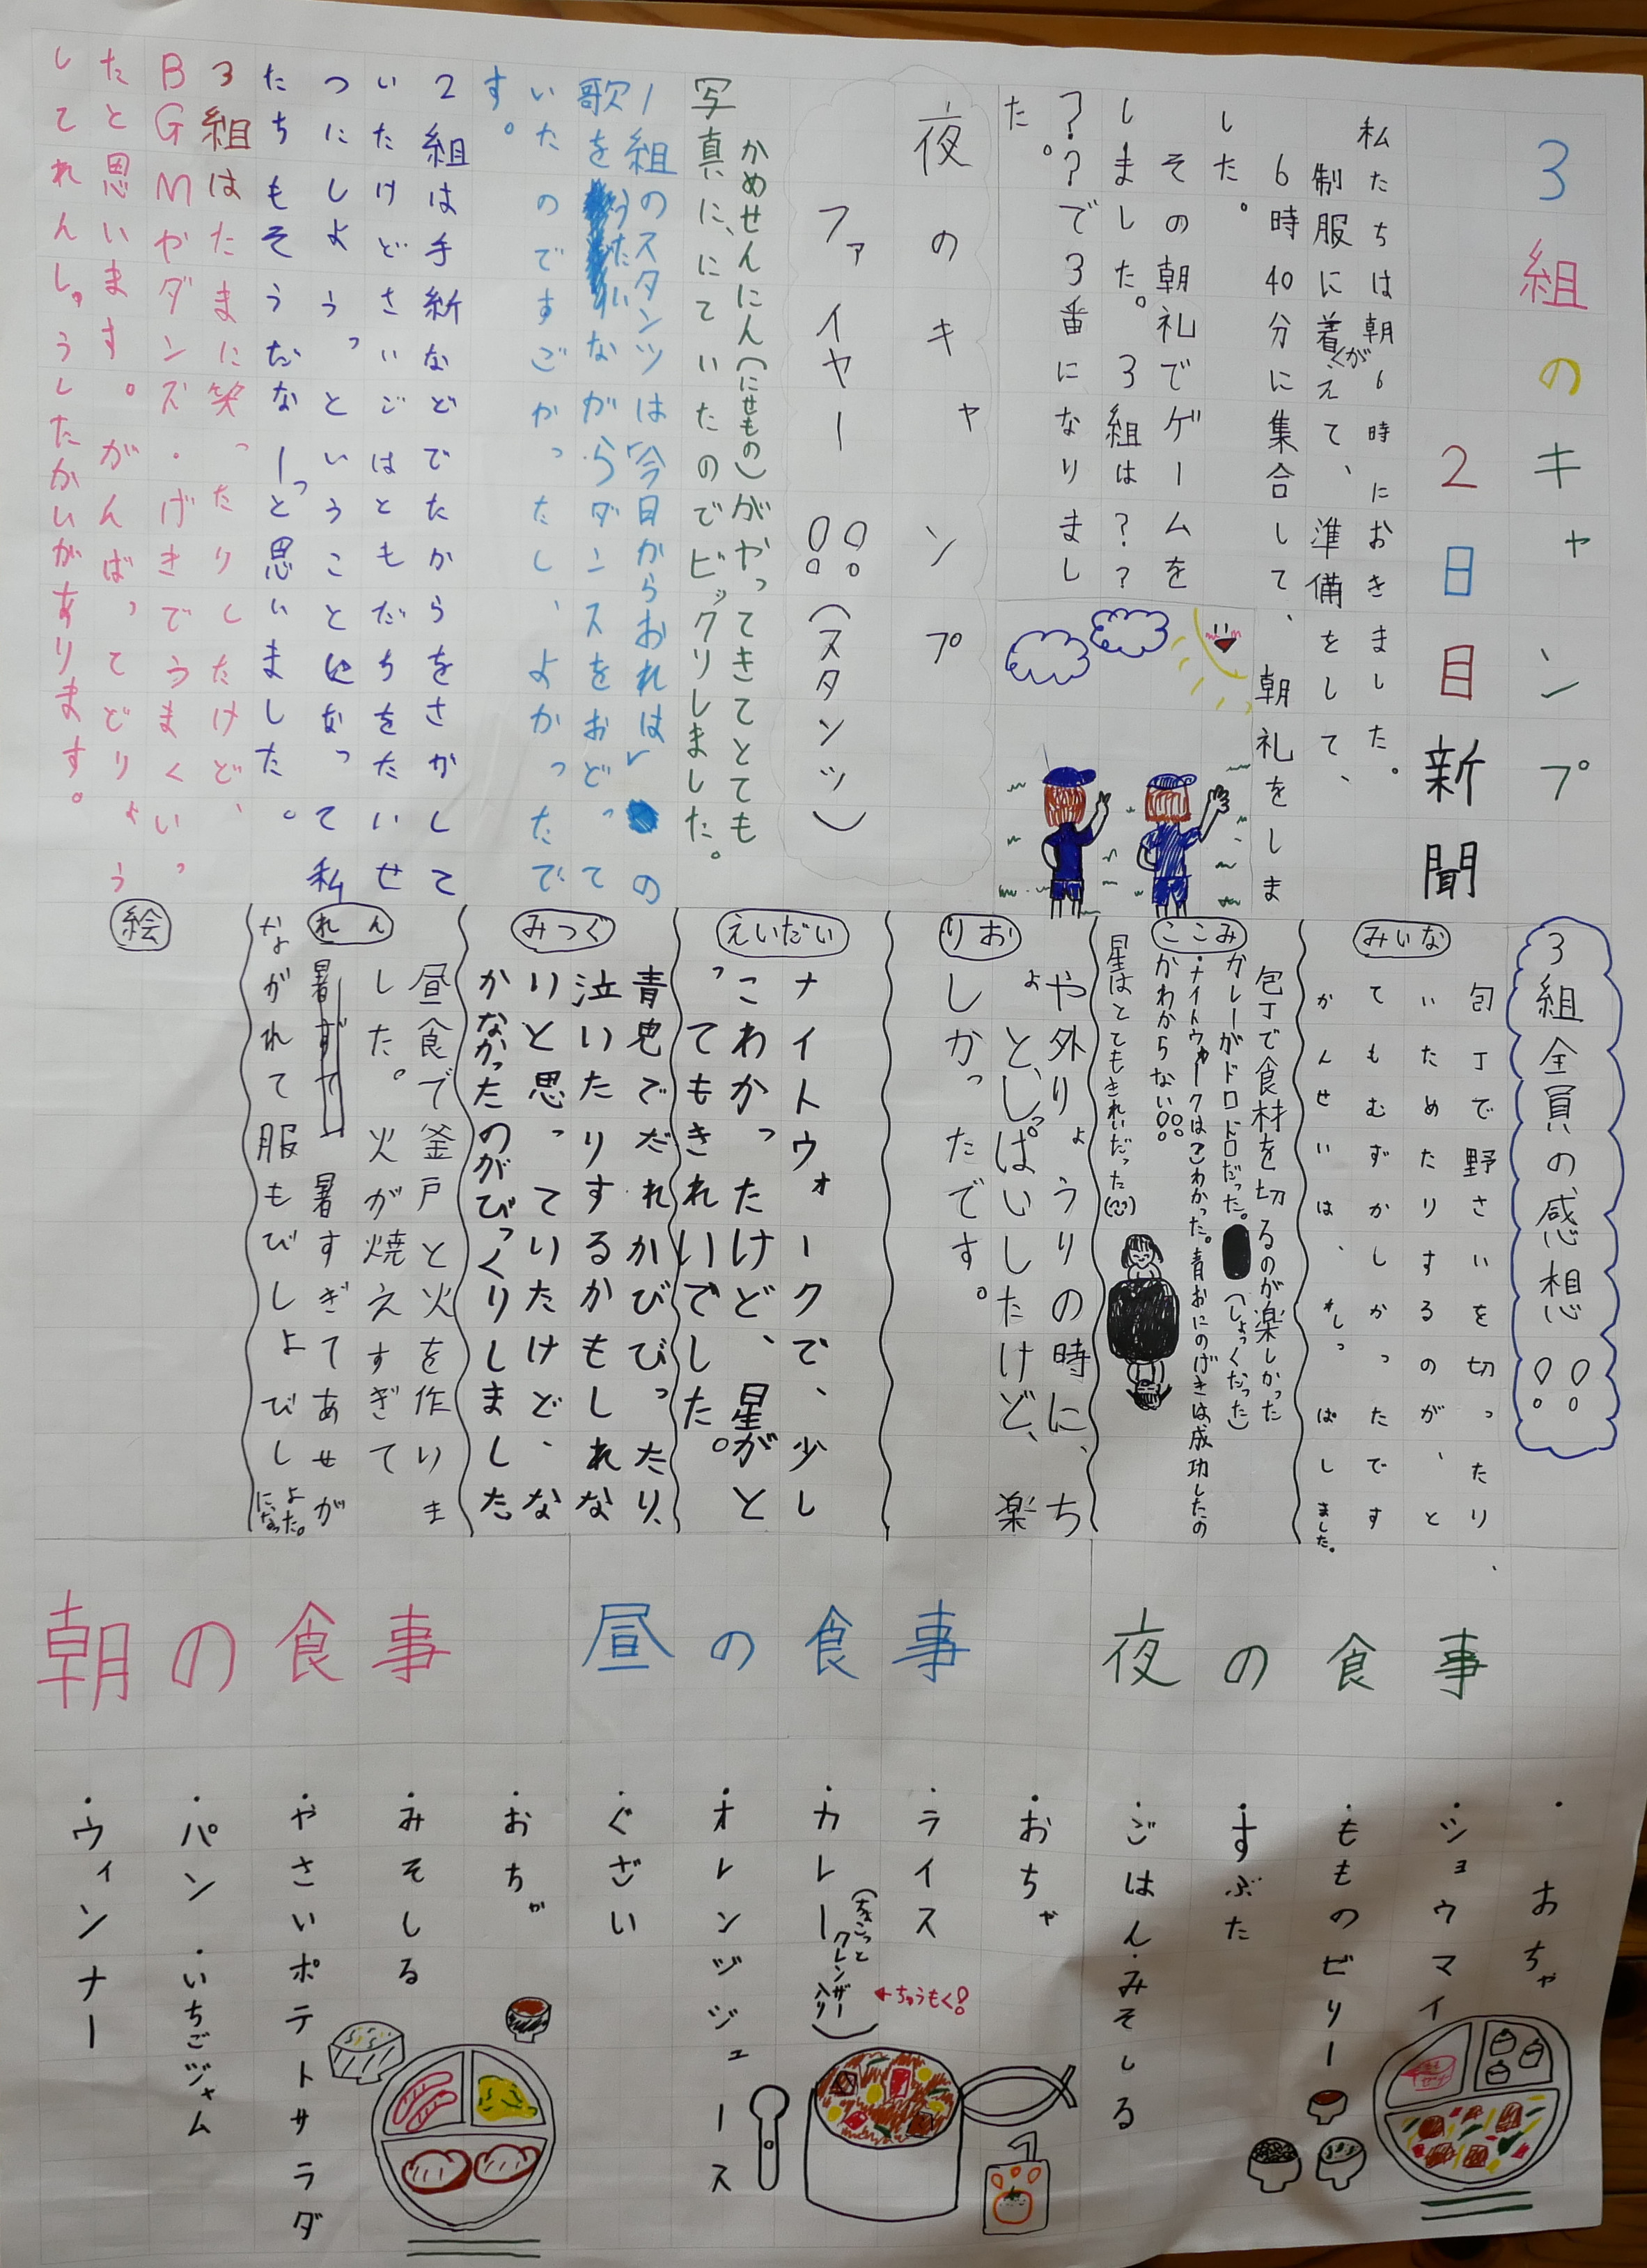 3組のキャンプ
2日目新聞
私たちは朝6時におきました。
制服に着がえて、準備をして、
6時40分に集合して、朝礼をしま
した。
その朝礼でゲームを
しました。3組は???
???で3番になりまし
た。
夜のキャンプ
ファイヤー!!(スタンツ)
かめせんにん(にせもの)がやってきてとても
写真に、にていたのでビックリしました。
1組のスタンツは「今日からおれは」の
歌をうたいながらダンスをおどって
いたのですごかったし、よかったで
す。
2組は手新などでたからをさがして
いたけどさいごはともだちをたいせ
つにしよう。ということになって私
たちもそうだなーっと思いました。
3組はたまに笑ったりしたけど、
BGMやダンス・げきでうまくいっ
たと思います。がんばってどりょう
してれんしゅうしたかいがあります。
3組全員の感想!!
みいな
包丁で野さいを切ったり、
いためたりするのが、と
てもむずかしかったです
かんせいは、れしっぱしました。
ここみ
包丁で食材を切るのが楽しかった
カレーがドロドロだった。(しょっくだった)
・ナイトウォークはこわかった。青おにのげきは成功したの
かわからない!!
星はとてもきれいだった
りお
や外りょうりの時に、ち
ょと、しっぱいしたけど、楽
しかったです。
えいだい
ナイトウォークで、少し
こわかったけど、星がと
ってもきれいでした。
みつぐ
青鬼でだれかびびったり、
泣いたりするかもしれな
いと思っていたけど、な
かなかったのがびっくりしました。
れん
昼食で釜戸と火を作りま
した。火が焼えすぎて
暑すぎてあせが
ながれて服もびしょびしょになった。
絵
夜の食事
・おちゃ
・ショウマイ
・もものゼリー
・すぶた
・ごはん・みそしる
昼の食事
・おちゃ
・ライス
・カレー(ちょこっとクレンザー入り)
←ちゅうもく!
・オレンジジュース
・ぐざい
朝の食事
・おちゃ
・みそしる
・やさいポテトサラダ
・パン・いちごジャム
・ウィンナー